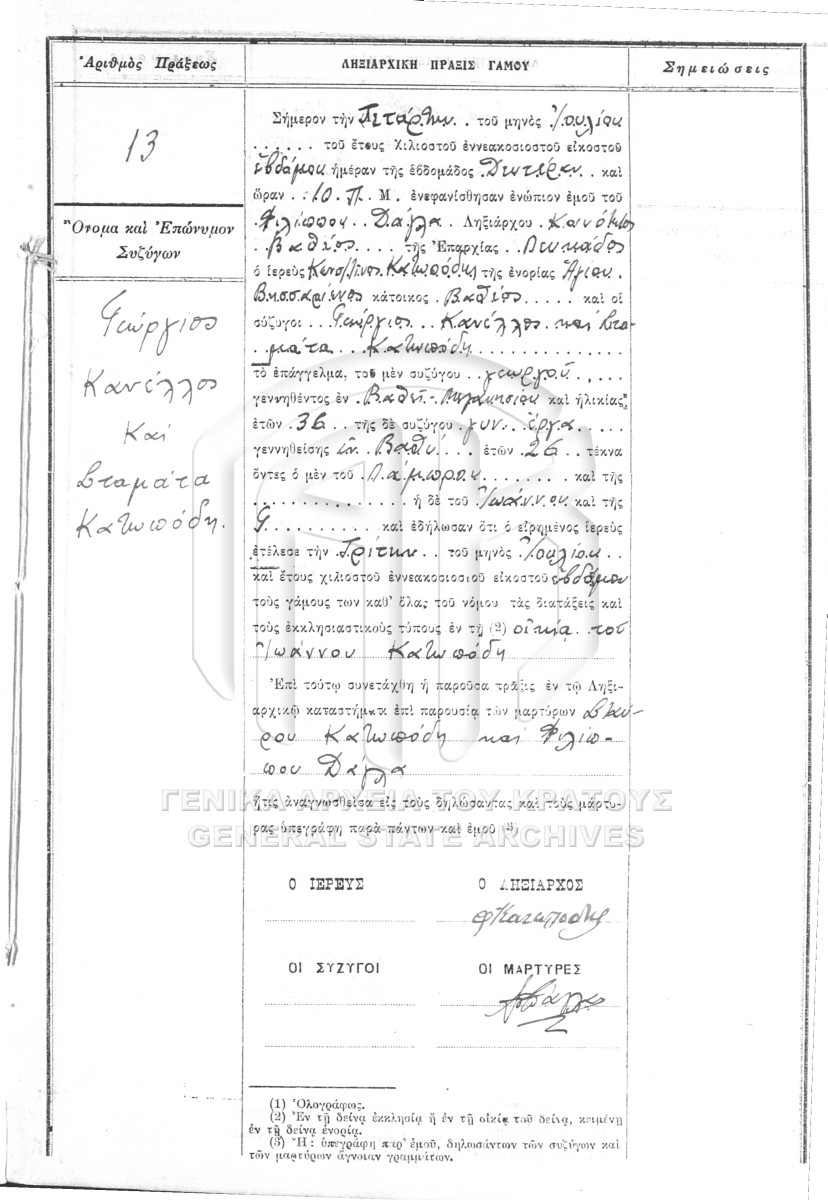 Ἀριθμὸς Πράξεως
ΛΗΞΙΑΡΧΙΚΗ ΠΡΑΞΙΣ ΓΑΜΟΥ
Σημειώσεις
13
Ὄνομα καὶ Ἐπώνυμον
Συζύγων
Γεώργιος
Κανέλλος
Καὶ
Σταμάτα
Κατωπόδη.
Σήμερον τὴν Τετάρτην . . τοῦ μηνὸς Ἰουλίου
. . . . . . τοῦ ἔτους χιλιοστοῦ ἐννεακοσιοστοῦ εἰκοστοῦ
ἑβδόμου ἡμέραν τῆς ἑβδομάδος Δευτέραν . . καὶ
ὥραν . . 10 . Π . Μ . ἐνεφανίσθησαν ἐνώπιον ἐμοῦ τοῦ
Φιλίππου . . Δάγλα . . Ληξιάρχου
. . Βαθέος . . . . τῆς Ἐπαρχίας . . Λευκάδος
ὁ ἱερεὺς Κωνσ/τῖνος Κατωπόδης τῆς ἐνορίας Ἁγίου .
Βησσαρίωνος κάτοικος . Βαθέος . . . . . καὶ οἱ
σύζυγοι . . Γεώργιος . . Κανέλλος καὶ Στα-
μάτα . . . Κατωπόδη . . . . . . . . . . . . . .
τὸ ἐπάγγελμα, τοῦ μὲν συζύγου . . γεωργοῦ . . . . .
γεννηθέντος ἐν . Βαθεῖ - Μεγανησίου καὶ ἡλικίας
ἐτῶν . 36 . . τῆς δὲ συζύγου . γυν . ἔργα . . . .
γεννηθείσης ἐν . Βαθύ . . . ἐτῶν . 26 . . τέκνα
ὄντες ὁ μὲν τοῦ . Λάμπρου . . . . . . . καὶ τῆς
. . . . . . . . . . . . . . ἡ δὲ τοῦ Ἰωάννου . καὶ τῆς
. . . . . . . . . . καὶ ἐδήλωσαν ὅτι ὁ εἰρημένος ἱερεὺς
ἐτέλεσε τὴν . Τρίτην . . τοῦ μηνὸς Ἰουλίου . .
καὶ ἔτους χιλιοστοῦ ἐννεακοσιοσιοῦ εἰκοστοῦ ἑβδόμου
τοὺς γάμους των καθ' ὅλας τοῦ νόμου τὰς διατάξεις καὶ
τοὺς ἐκκλησιαστικοὺς τύπους ἐν τῇ (2) οἰκίᾳ . . τοῦ
Ἰωάννου Κατωπόδη
Ἐπὶ τούτῳ συνετάχθη ἡ παροῦσα πρᾶξις ἐν τῷ Ληξι-
αρχικῷ καταστήματι ἐπὶ παρουσίᾳ τῶν μαρτύρων Σπύ-
ρου Κατωπόδη καὶ Φιλίπ-
που Δάγλα
ΓΕΝΙΚΑ ΑΡΧΕΙΑ ΤΟΥ ΚΡΑΤΟΥΣ
ἥτις ἀναγνωσθεῖσα εἰς τοὺς δηλώσαντας καὶ τοὺς μάρτυ-
ρας ὑπεγράφη παρὰ πάντων καὶ ἐμοῦ (3)
GENERAL STATE ARCHIVES
Ο ΙΕΡΕΥΣ
Ο ΛΗΞΙΑΡΧΟΣ
φΚατωπόδης
ΟΙ ΣΥΖΥΓΟΙ
ΟΙ ΜΑΡΤΥΡΕΣ
(1) Ὁλογράφως.
(2) Ἐν τῇ δεῖνα ἐκκλησίᾳ ἢ ἐν τῇ οἰκίᾳ τοῦ δεῖνα, κειμένῃ
ἐν τῇ δεῖνα ἐνορίᾳ.
(3) Ἢ : ὑπεγράφη παρ' ἐμοῦ, δηλωσάντων τῶν συζύγων καὶ
τῶν μαρτύρων ἄγνοιαν γραμμάτων.